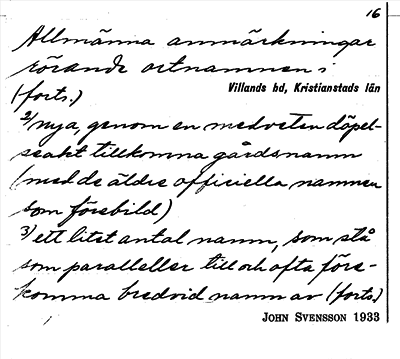 16
Allmänna anmärkningar
rörande ortnamnen i
Villands hd, Kristianstads län
(forts.)
2) nya, genom en medveten döpel-
seakt tillkomna gårdsnamn
(med de äldre officiella namnen
som förebild)
3) ett litet antal namn, som stå
som paralleller till och ofta före-
komma bredvid namn av (forts.)
JOHN SVENSSON 1933